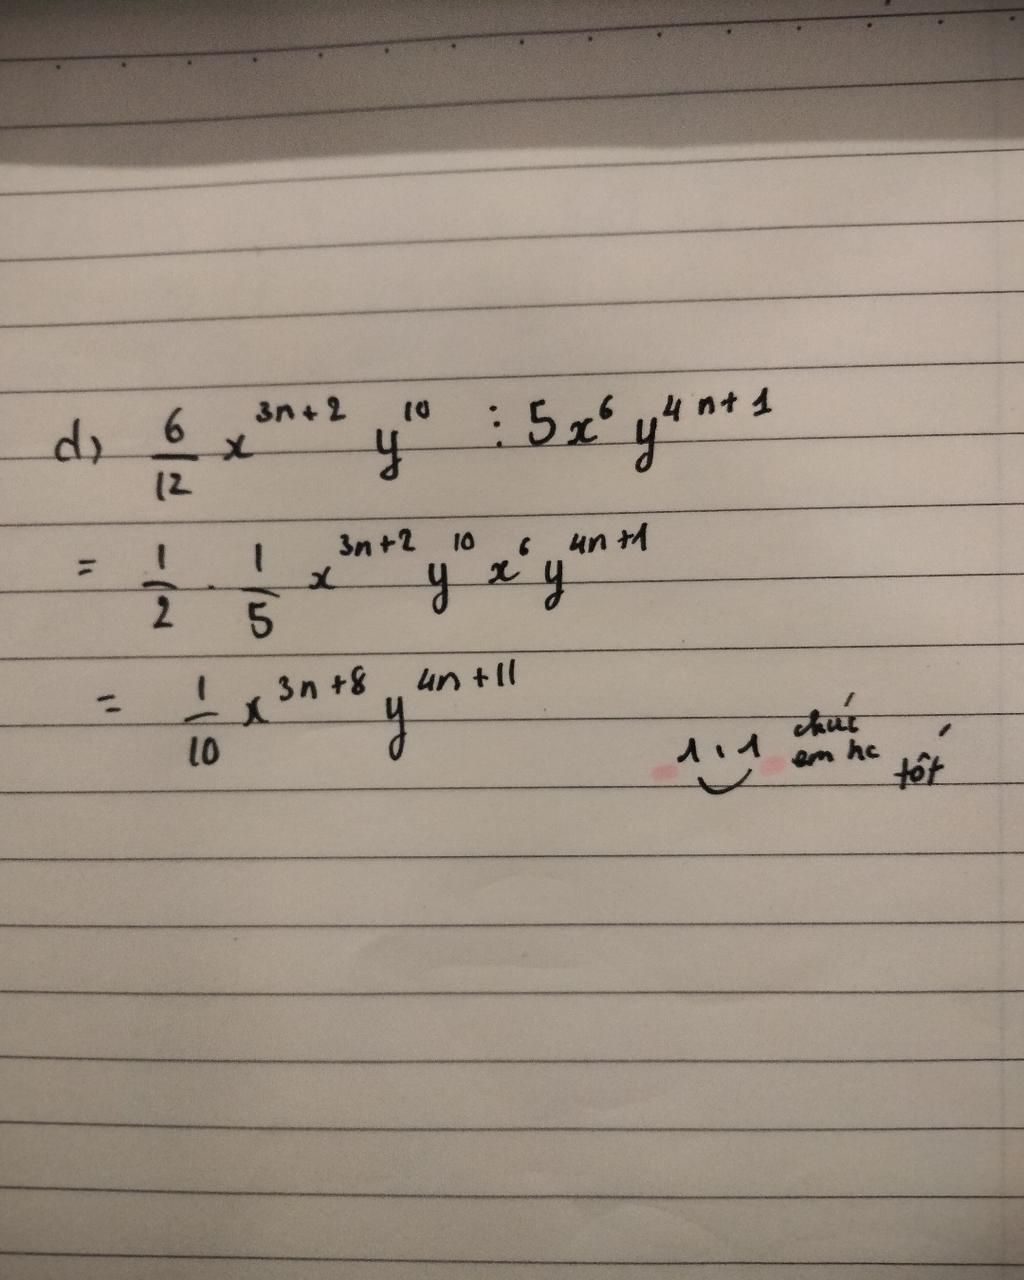 d) 6/12 x^{3n+2} y^{10} : 5x^6 y^{4n+1}
= 1/2 . 1/5 x^{3n+2} y^{10} x^6 y^{4n+1}
= 1/10 x^{3n+8} y^{4n+11}
chúc
em hc
tốt